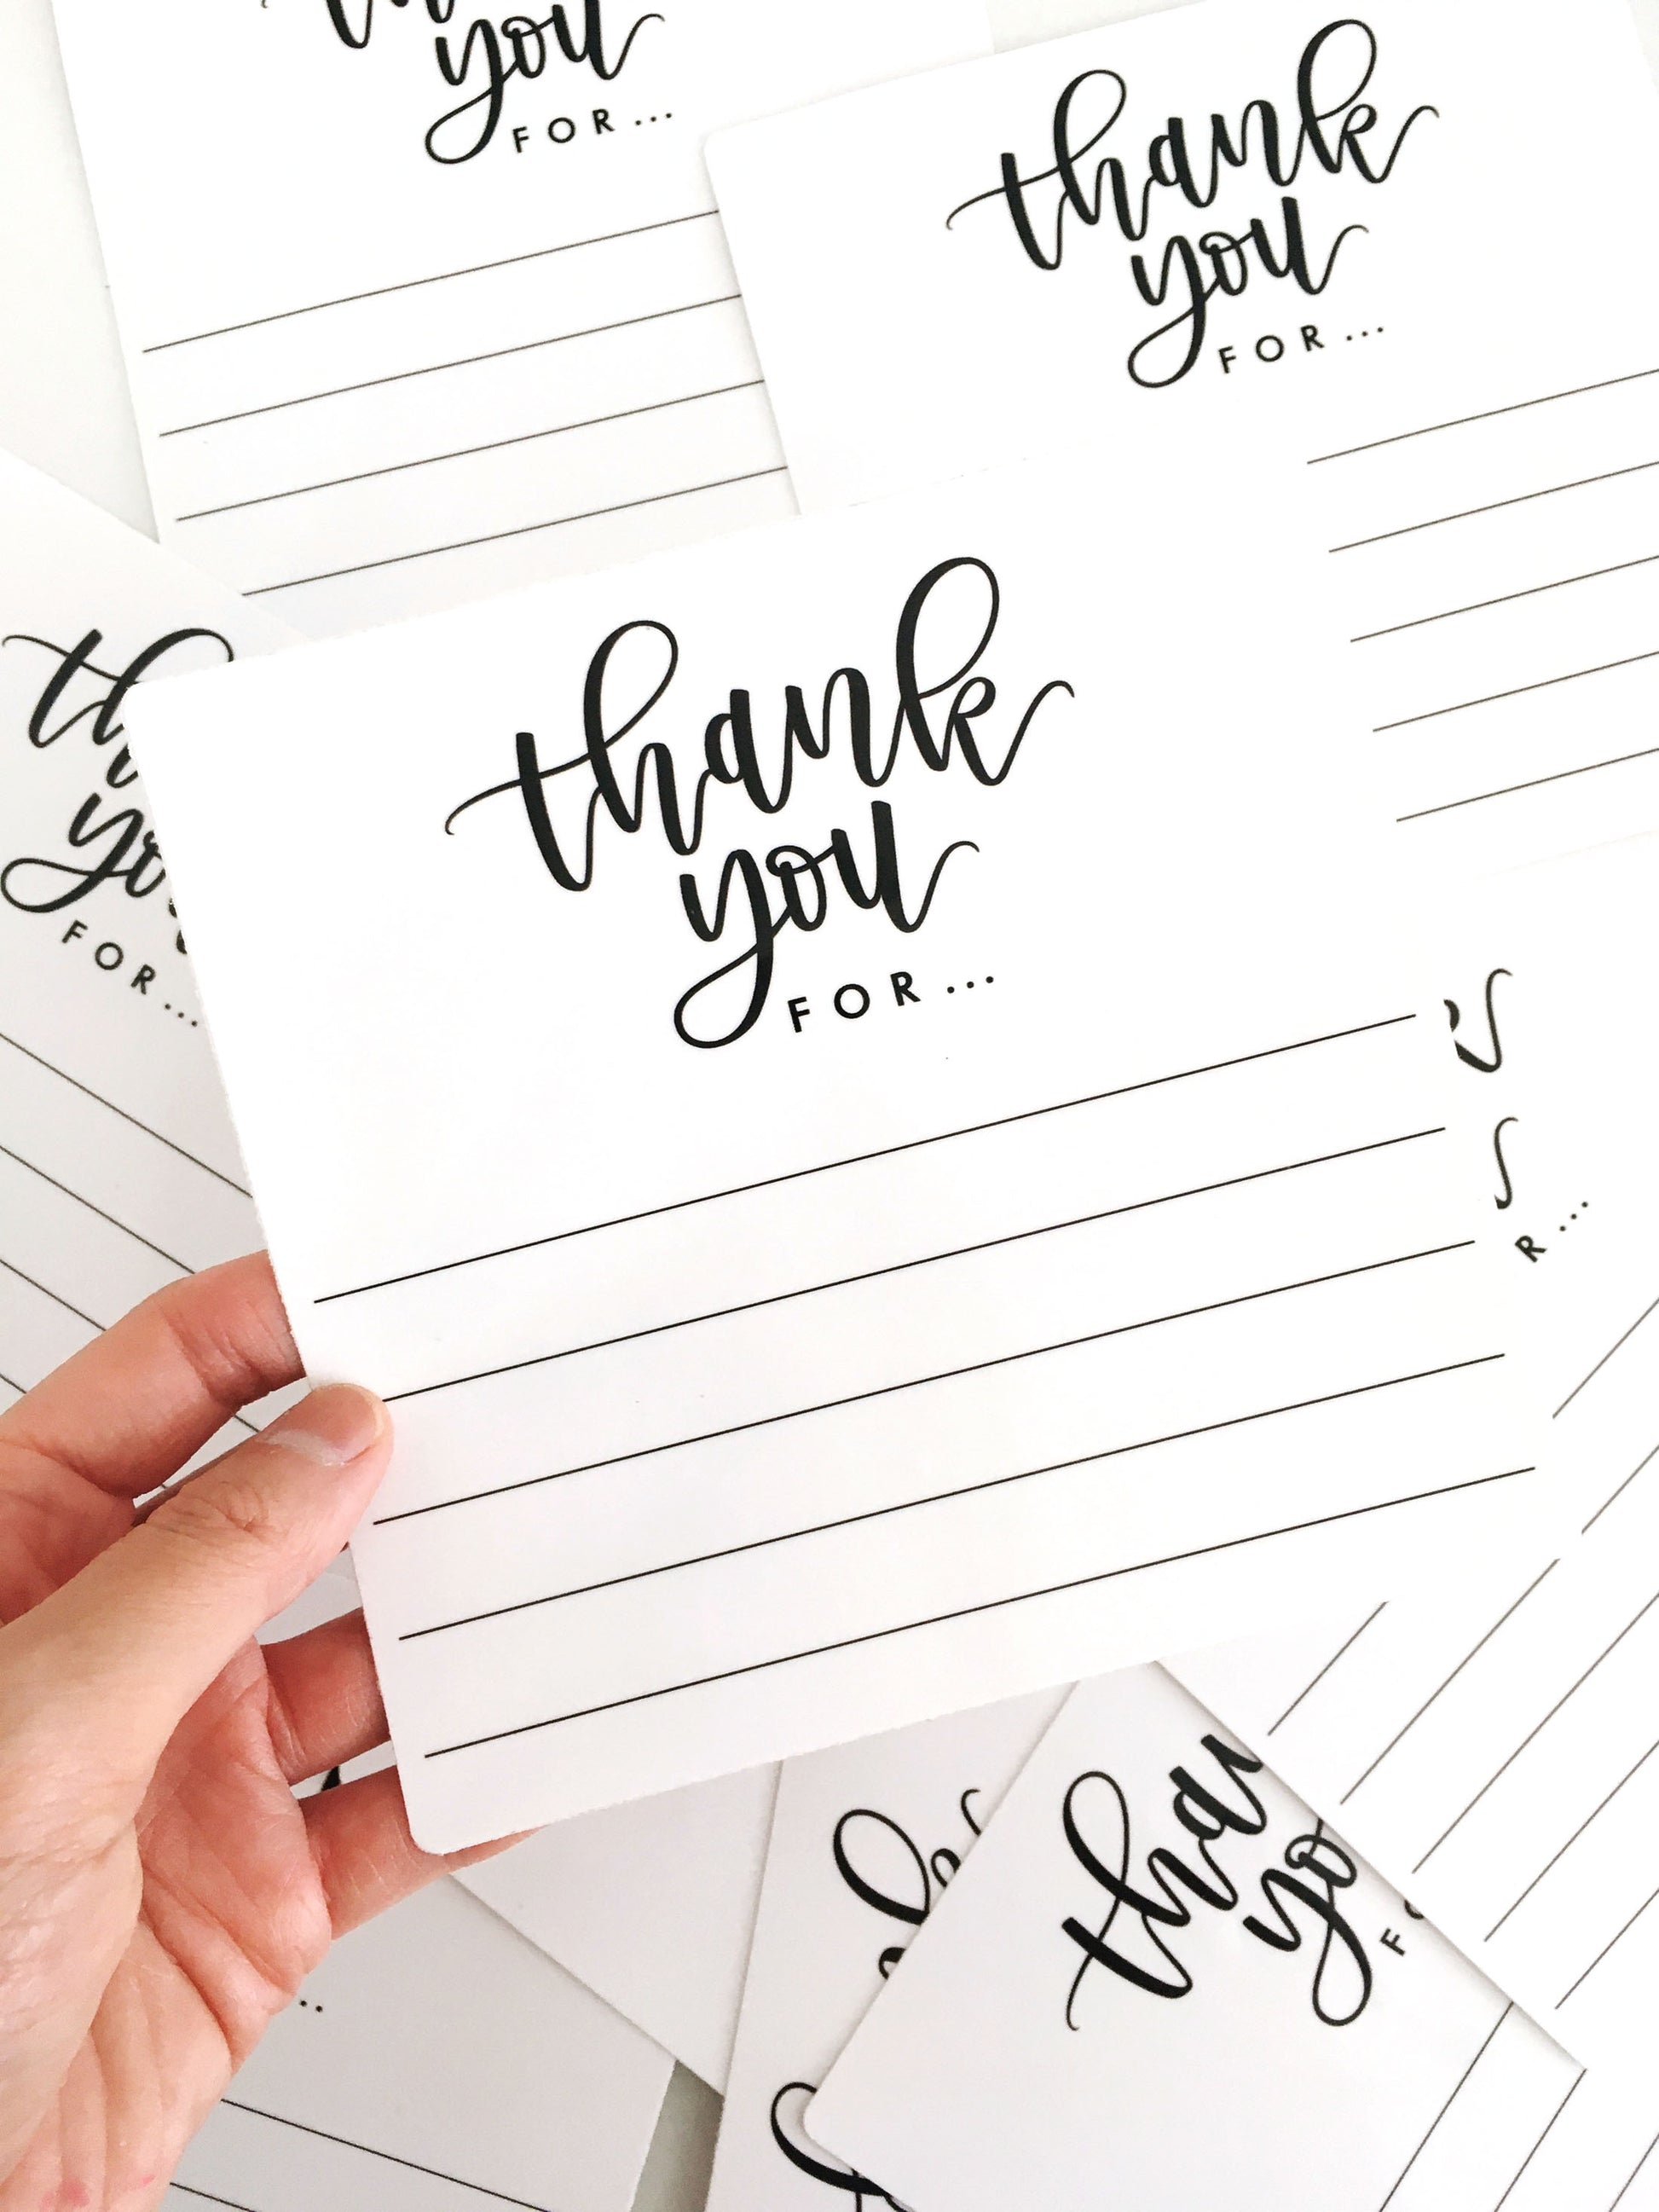 you
FOR...
thank
you
FOR...
thank
you
FOR...
FOR...
R...